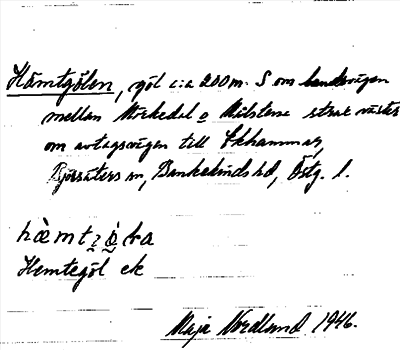 Hämtgölen, göl c:a 200 m. S om landsvägen
mellan Morkedal o Milstena strax väster
om avtagsvägen till Ekhammar,
Björsäters sn, Bankekinds hd, Östg. l.
Hemtegöl ek
Maja Nordlund 1946.